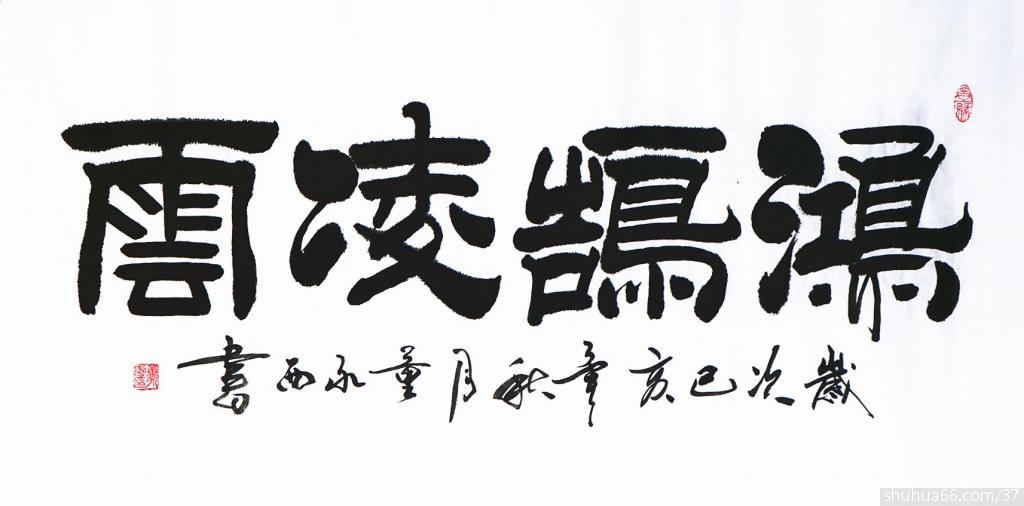 鴻鵠凌雲
歲次己亥年秋月董永西書
shuhua66.com/37